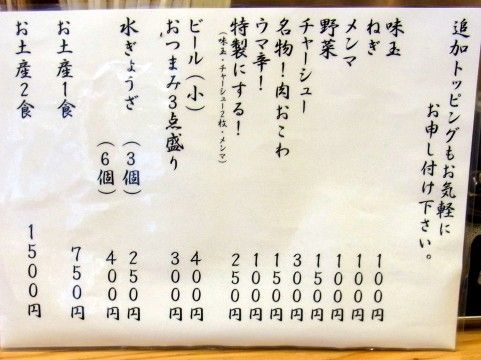 追加トッピングもお気軽に
お申し付け下さい。
味玉 100円
ねぎ 100円
メンマ 100円
野菜 150円
チャーシュー 300円
名物！肉おこわ 150円
ウマ辛！ 100円
特製にする！ 250円
（味玉・チャーシュー2枚・メンマ）
ビール（小） 400円
おつまみ3点盛り 300円
水ぎょうざ（3個） 250円
（6個） 400円
お土産1食 750円
お土産2食 1500円